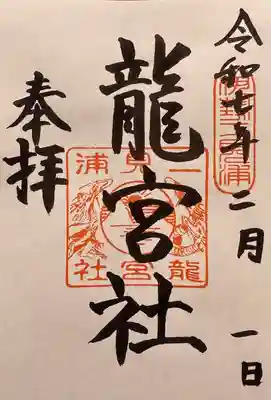 令和七年二月一日
龍宮社
奉拝
二見浦
龍宮社